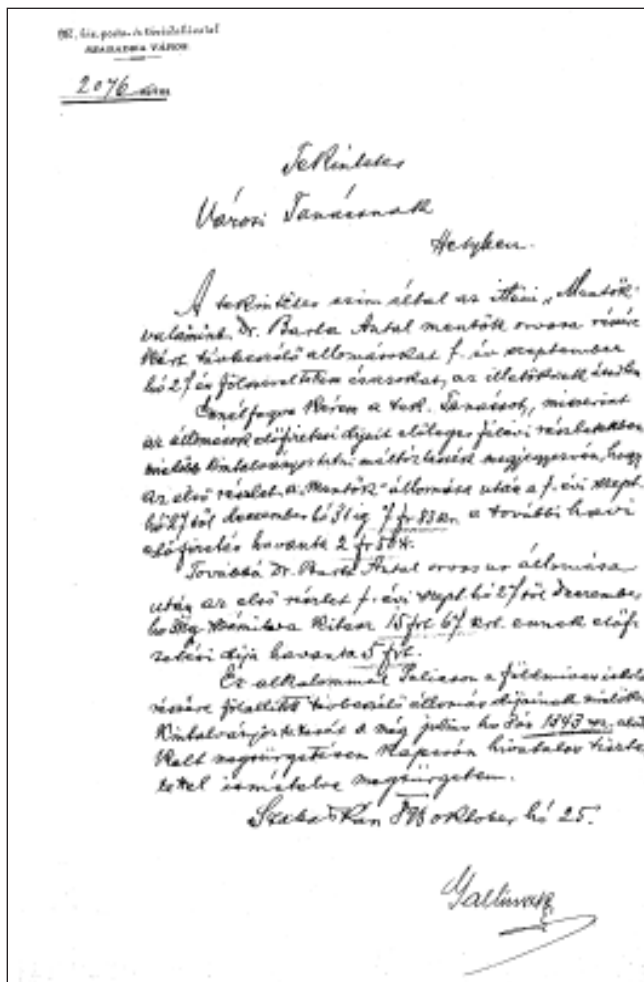 M. kir. posta- és távirdahivatal
SZABADKA VÁROS
2076 szám
Tekintetes
Városi Tanácsnak
Helyben.
A tekintetes czim által az itteni „Mentők"
valamint Dr. Barta Antal mentők orvosa részére
kért távbeszélő állomásokat f. év szeptember
hó 27 én fölszereltettem és azokat, az illetőknek
Ennélfogva kérem a tek. Tanácsot, miszerint
az állomások előfizetési dijait előleges félévi részletekben
mielőbb kiutalványoztatni méltóztassék megjegyezvén, hogy
az első részlet a „Mentők" állomása után a f. évi szept.
hó 27 től december hó 31 ig 7 fr 83 kr. a további havi
előfizetés havonta 2 fr 50 kr.
Továbbá Dr. Barta Antal orvos ur állomása
után az első részlet f. évi szept. hó 27 től Deczember
hó 31 ig számitva kitesz 15 frt 67 krt. ennek előfi-
zetési dija havonta 5 frt.
Ez alkalommal Palicson a földmives iskola
részére fölállitott távbeszélő állomás dijainak mielőbbi
kiutalványoztatását a még július hó 1843 sz. alatt
kelt megsürgetésem kapcsán hivatalos tiszte-
lettel ismételve megsürgetem.
Szabadkán október hó 25.